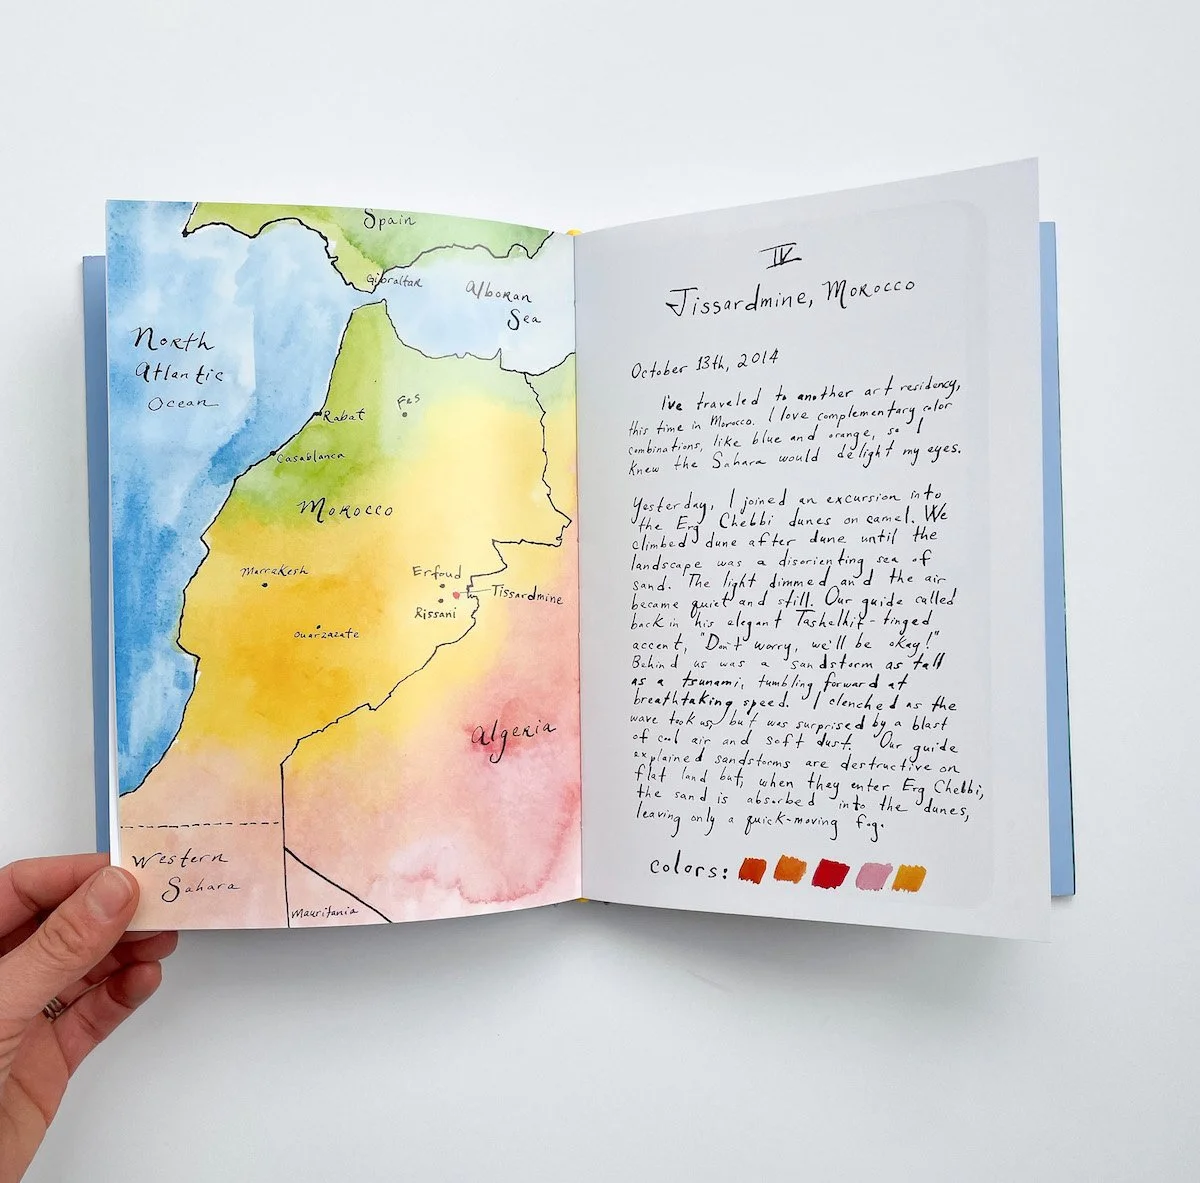 Spain
Gibraltar
Alboran
Sea
North
Atlantic
Ocean
Rabat
Fes
Casablanca
Morocco
Marrakesh
Erfoud
Tissardmine
Rissani
Ouarzazate
Algeria
Western
Sahara
Mauritania
IV
Tissardmine, Morocco
October 13th, 2014
I've traveled to another art residency,
this time in Morocco. I love complementary color
combinations, like blue and orange, so I
knew the Sahara would delight my eyes.
Yesterday, I joined an excursion into
the Erg Chebbi dunes on camel. We
climbed dune after dune until the
landscape was a disorienting sea of
sand. The light dimmed and the air
became quiet and still. Our guide called
back in his elegant Tashelhit-tinged
accent, "Don't worry, we'll be okay!"
Behind us was a sandstorm as tall
as a tsunami, tumbling forward at
breathtaking speed. I clenched as the
wave took us, but was surprised by a blast
of cool air and soft dust. Our guide
explained sandstorms are destructive on
flat land but, when they enter Erg Chebbi,
the sand is absorbed into the dunes,
leaving only a quick-moving fog.
colors: